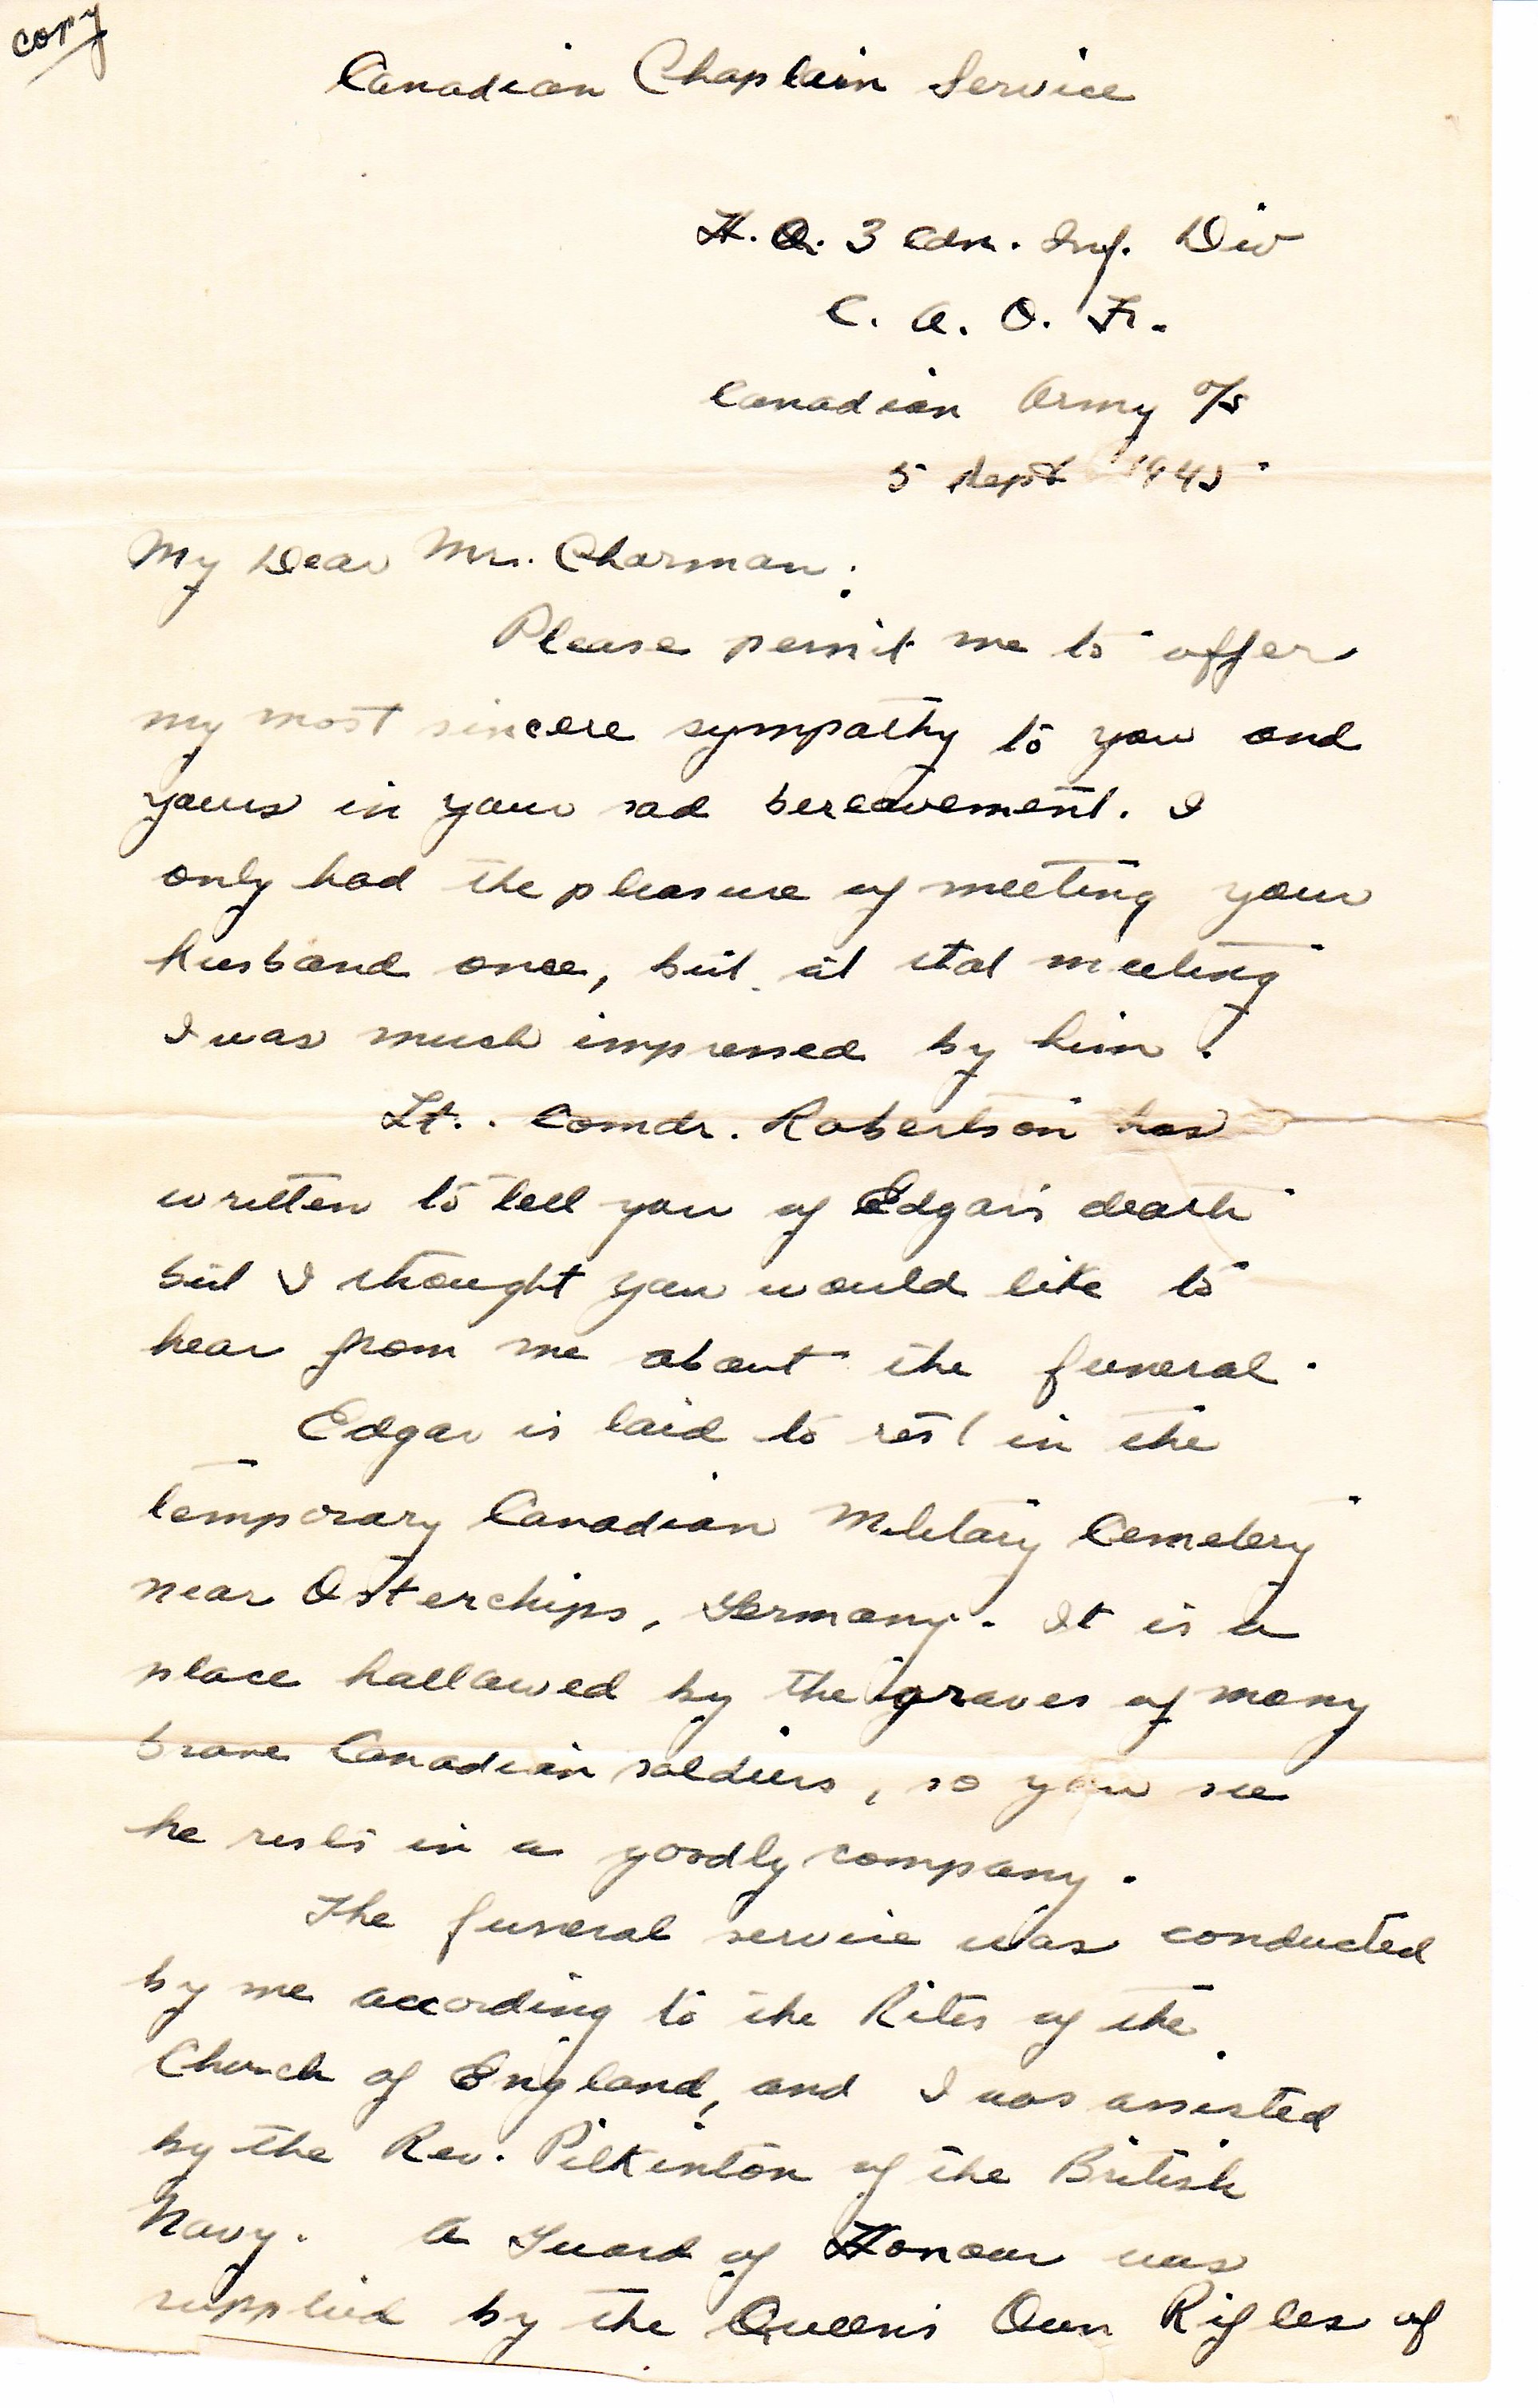 copy
Canadian Chaplain Service
H.Q. 3 Cdn. Inf. Div
C. A. O. F.
Canadian Army O/S
5 Sept 1945
My Dear Mrs. Charman:
Please permit me to offer
my most sincere sympathy to you and
yours in your sad bereavement. I
only had the pleasure of meeting your
husband once, but at that meeting
I was much impressed by him.
Lt. Comdr. Robertson has
written to tell you of Edgar's death
but I thought you would like to
hear from me about the funeral.
Edgar is laid to rest in the
temporary Canadian Military Cemetery
near Osterchips, Germany. It is a
place hallowed by the graves of many
brave Canadian soldiers, so you see
he rests in a goodly company.
The funeral service was conducted
by me according to the Rites of the
Church of England, and I was assisted
by the Rev. Pilkinton of the British
Navy. A Guard of Honour was
supplied by the Queen's Own Rifles of